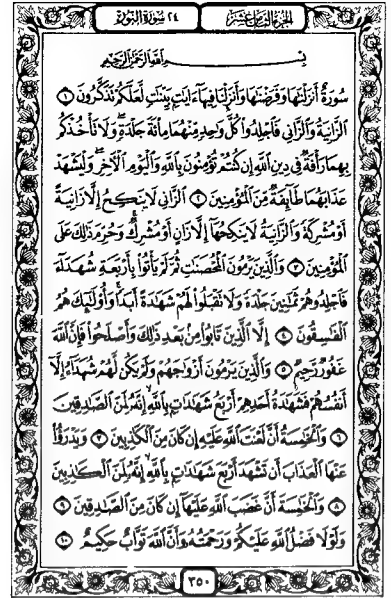 الجزء الثامن عشر ٢٤ سورة النور
بِسْمِ اللَّهِ الرَّحْمَٰنِ الرَّحِيمِ
سُورَةٌ أَنزَلْنَٰهَا وَفَرَضْنَٰهَا وَأَنزَلْنَا فِيهَآ ءَايَٰتٍۭ بَيِّنَٰتٍ لَّعَلَّكُمْ تَذَكَّرُونَ ١
ٱلزَّانِيَةُ وَٱلزَّانِى فَٱجْلِدُوا۟ كُلَّ وَٰحِدٍ مِّنْهُمَا مِا۟ئَةَ جَلْدَةٍ وَلَا تَأْخُذْكُم
بِهِمَا رَأْفَةٌ فِى دِينِ ٱللَّهِ إِن كُنتُمْ تُؤْمِنُونَ بِٱللَّهِ وَٱلْيَوْمِ ٱلْءَاخِرِ وَلْيَشْهَدْ
عَذَابَهُمَا طَآئِفَةٌ مِّنَ ٱلْمُؤْمِنِينَ ٢ ٱلزَّانِى لَا يَنكِحُ إِلَّا زَانِيَةً
أَوْ مُشْرِكَةً وَٱلزَّانِيَةُ لَا يَنكِحُهَآ إِلَّا زَانٍ أَوْ مُشْرِكٌ وَحُرِّمَ ذَٰلِكَ عَلَى
ٱلْمُؤْمِنِينَ ٣ وَٱلَّذِينَ يَرْمُونَ ٱلْمُحْصَنَٰتِ ثُمَّ لَمْ يَأْتُوا۟ بِأَرْبَعَةِ شُهَدَآءَ
فَٱجْلِدُوهُمْ ثَمَٰنِينَ جَلْدَةً وَلَا تَقْبَلُوا۟ لَهُمْ شَهَٰدَةً أَبَدًا وَأُو۟لَٰٓئِكَ هُمُ
ٱلْفَٰسِقُونَ ٤ إِلَّا ٱلَّذِينَ تَابُوا۟ مِنۢ بَعْدِ ذَٰلِكَ وَأَصْلَحُوا۟ فَإِنَّ ٱللَّهَ
غَفُورٌ رَّحِيمٌ ٥ وَٱلَّذِينَ يَرْمُونَ أَزْوَٰجَهُمْ وَلَمْ يَكُن لَّهُمْ شُهَدَآءُ إِلَّآ
أَنفُسُهُمْ فَشَهَٰدَةُ أَحَدِهِمْ أَرْبَعُ شَهَٰدَٰتٍۭ بِٱللَّهِ إِنَّهُۥ لَمِنَ ٱلصَّٰدِقِينَ
٦ وَٱلْخَٰمِسَةُ أَنَّ لَعْنَتَ ٱللَّهِ عَلَيْهِ إِن كَانَ مِنَ ٱلْكَٰذِبِينَ ٧ وَيَدْرَؤُا۟
عَنْهَا ٱلْعَذَابَ أَن تَشْهَدَ أَرْبَعَ شَهَٰدَٰتٍۭ بِٱللَّهِ إِنَّهُۥ لَمِنَ ٱلْكَٰذِبِينَ
٨ وَٱلْخَٰمِسَةَ أَنَّ غَضَبَ ٱللَّهِ عَلَيْهَآ إِن كَانَ مِنَ ٱلصَّٰدِقِينَ ٩
وَلَوْلَا فَضْلُ ٱللَّهِ عَلَيْكُمْ وَرَحْمَتُهُۥ وَأَنَّ ٱللَّهَ تَوَّابٌ حَكِيمٌ ١٠
٣٥٠